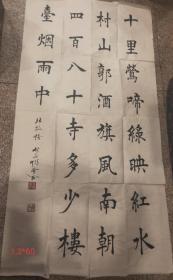 十里鶯啼綠映紅水
村山郭酒旗風南朝
四百八十寺多少樓
臺烟雨中
杜牧詩
1.2*60